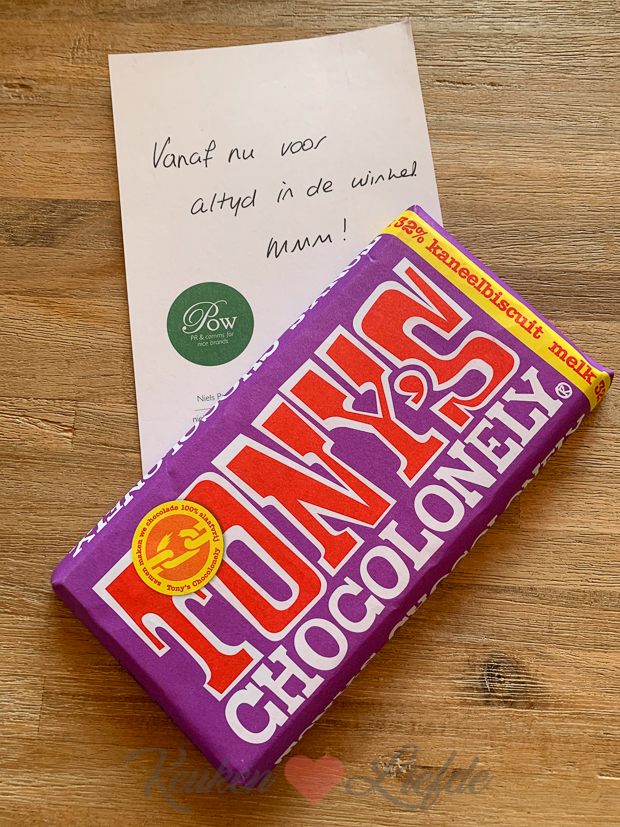 Vanaf nu voor
altyd in de winkel
mmm!
Pow
PR & comms for
nice brands
Niels
32% kaneelbiscuit melk
TONY'S
CHOCOLONELY®
samen maken we chocolade 100% slaafvrij
Tony's Chocolonely
Keuken Liefde